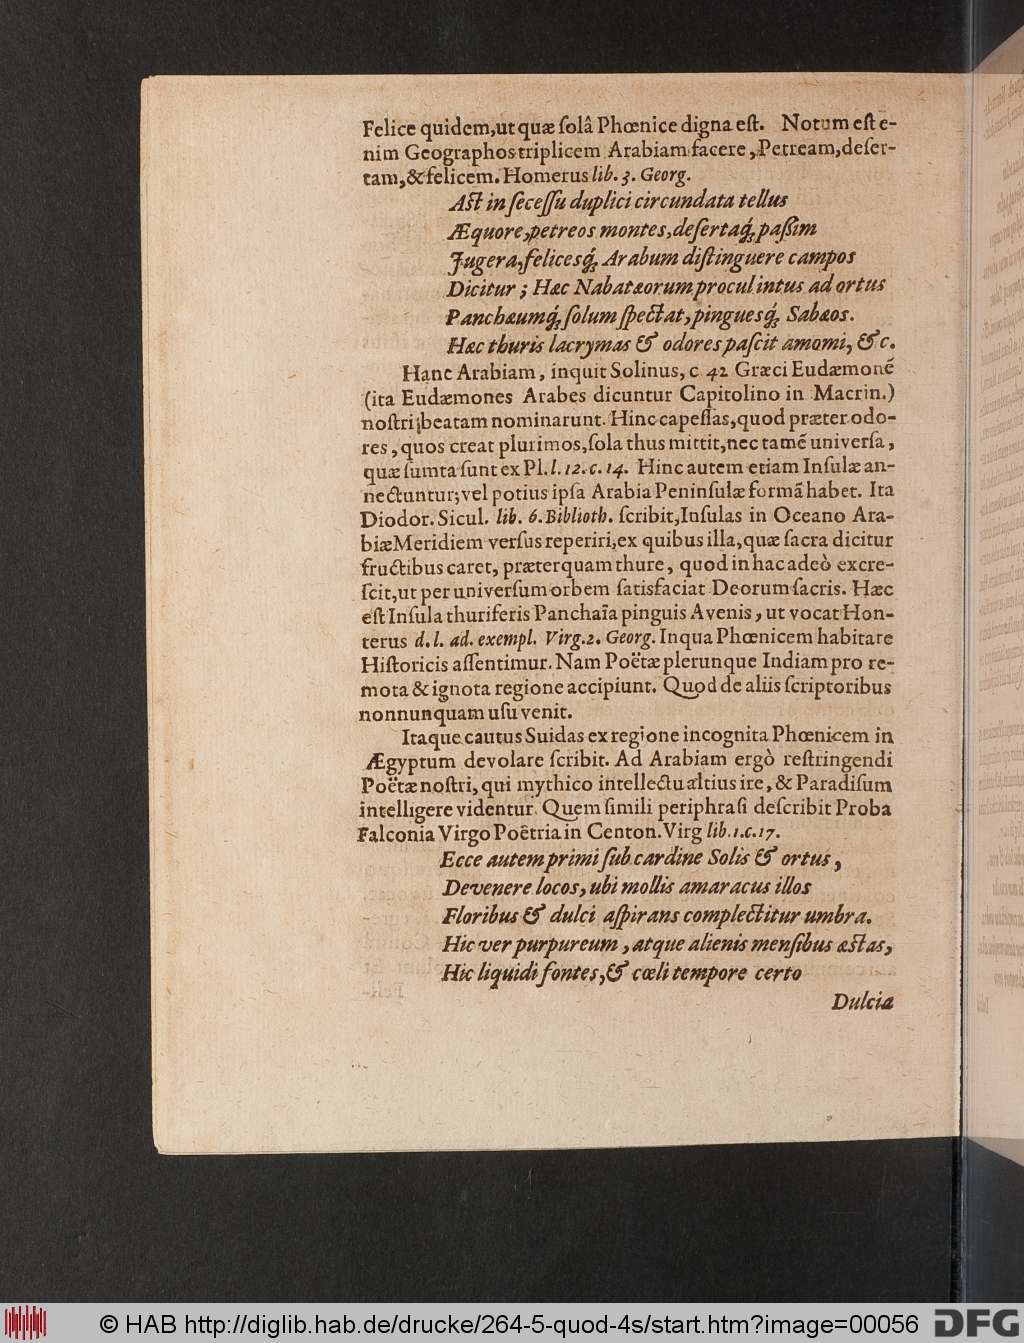 Felice quidem, ut quæ ſolâ Phœnice digna eſt. Notum eſt e-
nim Geographos triplicem Arabiam facere, Petream, deſer-
tam, & felicem. Homerus lib. 3. Georg.
Aſt in ſeceſſu duplici circundata tellus
Æquore, petreos montes, deſertaq́; paßim
Jugera, felicesq́; Arabum diſtinguere campos
Dicitur; Hæc Nabatæorum procul intus ad ortus
Panchæumq́; ſolum ſpectat, pinguesq́; Sabæos.
Hæc thuris lacrymas & odores paſcit amomi, &c.
Hanc Arabiam, inquit Solinus, c 42 Græci Eudæmonē
(ita Eudæmones Arabes dicuntur Capitolino in Macrin.)
noſtri beatam nominarunt. Hinc capeſſas, quod præter odo-
res, quos creat plurimos, ſola thus mittit, nec tamē univerſa,
quæ ſumta ſunt ex Pl. l. 12. c. 14. Hinc autem etiam Inſulæ an-
nectuntur; vel potius ipſa Arabia Peninſulæ formā habet. Ita
Diodor. Sicul. lib. 6. Biblioth. ſcribit, Inſulas in Oceano Ara-
biæ Meridiem verſus reperiri, ex quibus illa, quæ ſacra dicitur
fructibus caret, præterquam thure, quod in hac adeò excre-
ſcit, ut per univerſum orbem ſatisfaciat Deorum ſacris. Hæc
eſt Inſula thuriferis Panchaïa pinguis Avenis, ut vocat Hon-
terus d. l. ad. exempl. Virg. 2. Georg. In qua Phœnicem habitare
Hiſtoricis aſſentimur. Nam Poëtæ plerunque Indiam pro re-
mota & ignota regione accipiunt. Quod de aliis ſcriptoribus
nonnunquam uſu venit.
Itaque cautus Suidas ex regione incognita Phœnicem in
Ægyptum devolare ſcribit. Ad Arabiam ergò reſtringendi
Poëtæ noſtri, qui mythico intellectu altius ire, & Paradiſum
intelligere videntur. Quem ſimili periphraſi deſcribit Proba
Falconia Virgo Poëtria in Centon. Virg lib. 1. c. 17.
Ecce autem primi ſub cardine Solis & ortus,
Devenere locos, ubi mollis amaracus illos
Floribus & dulci aſpirans complectitur umbra.
Hic ver purpureum, atque alienis menſibus æſtas,
Hic liquidi fontes, & cœli tempore certo
Dulcia
© HAB http://diglib.hab.de/drucke/264-5-quod-4s/start.htm?image=00056
DFG